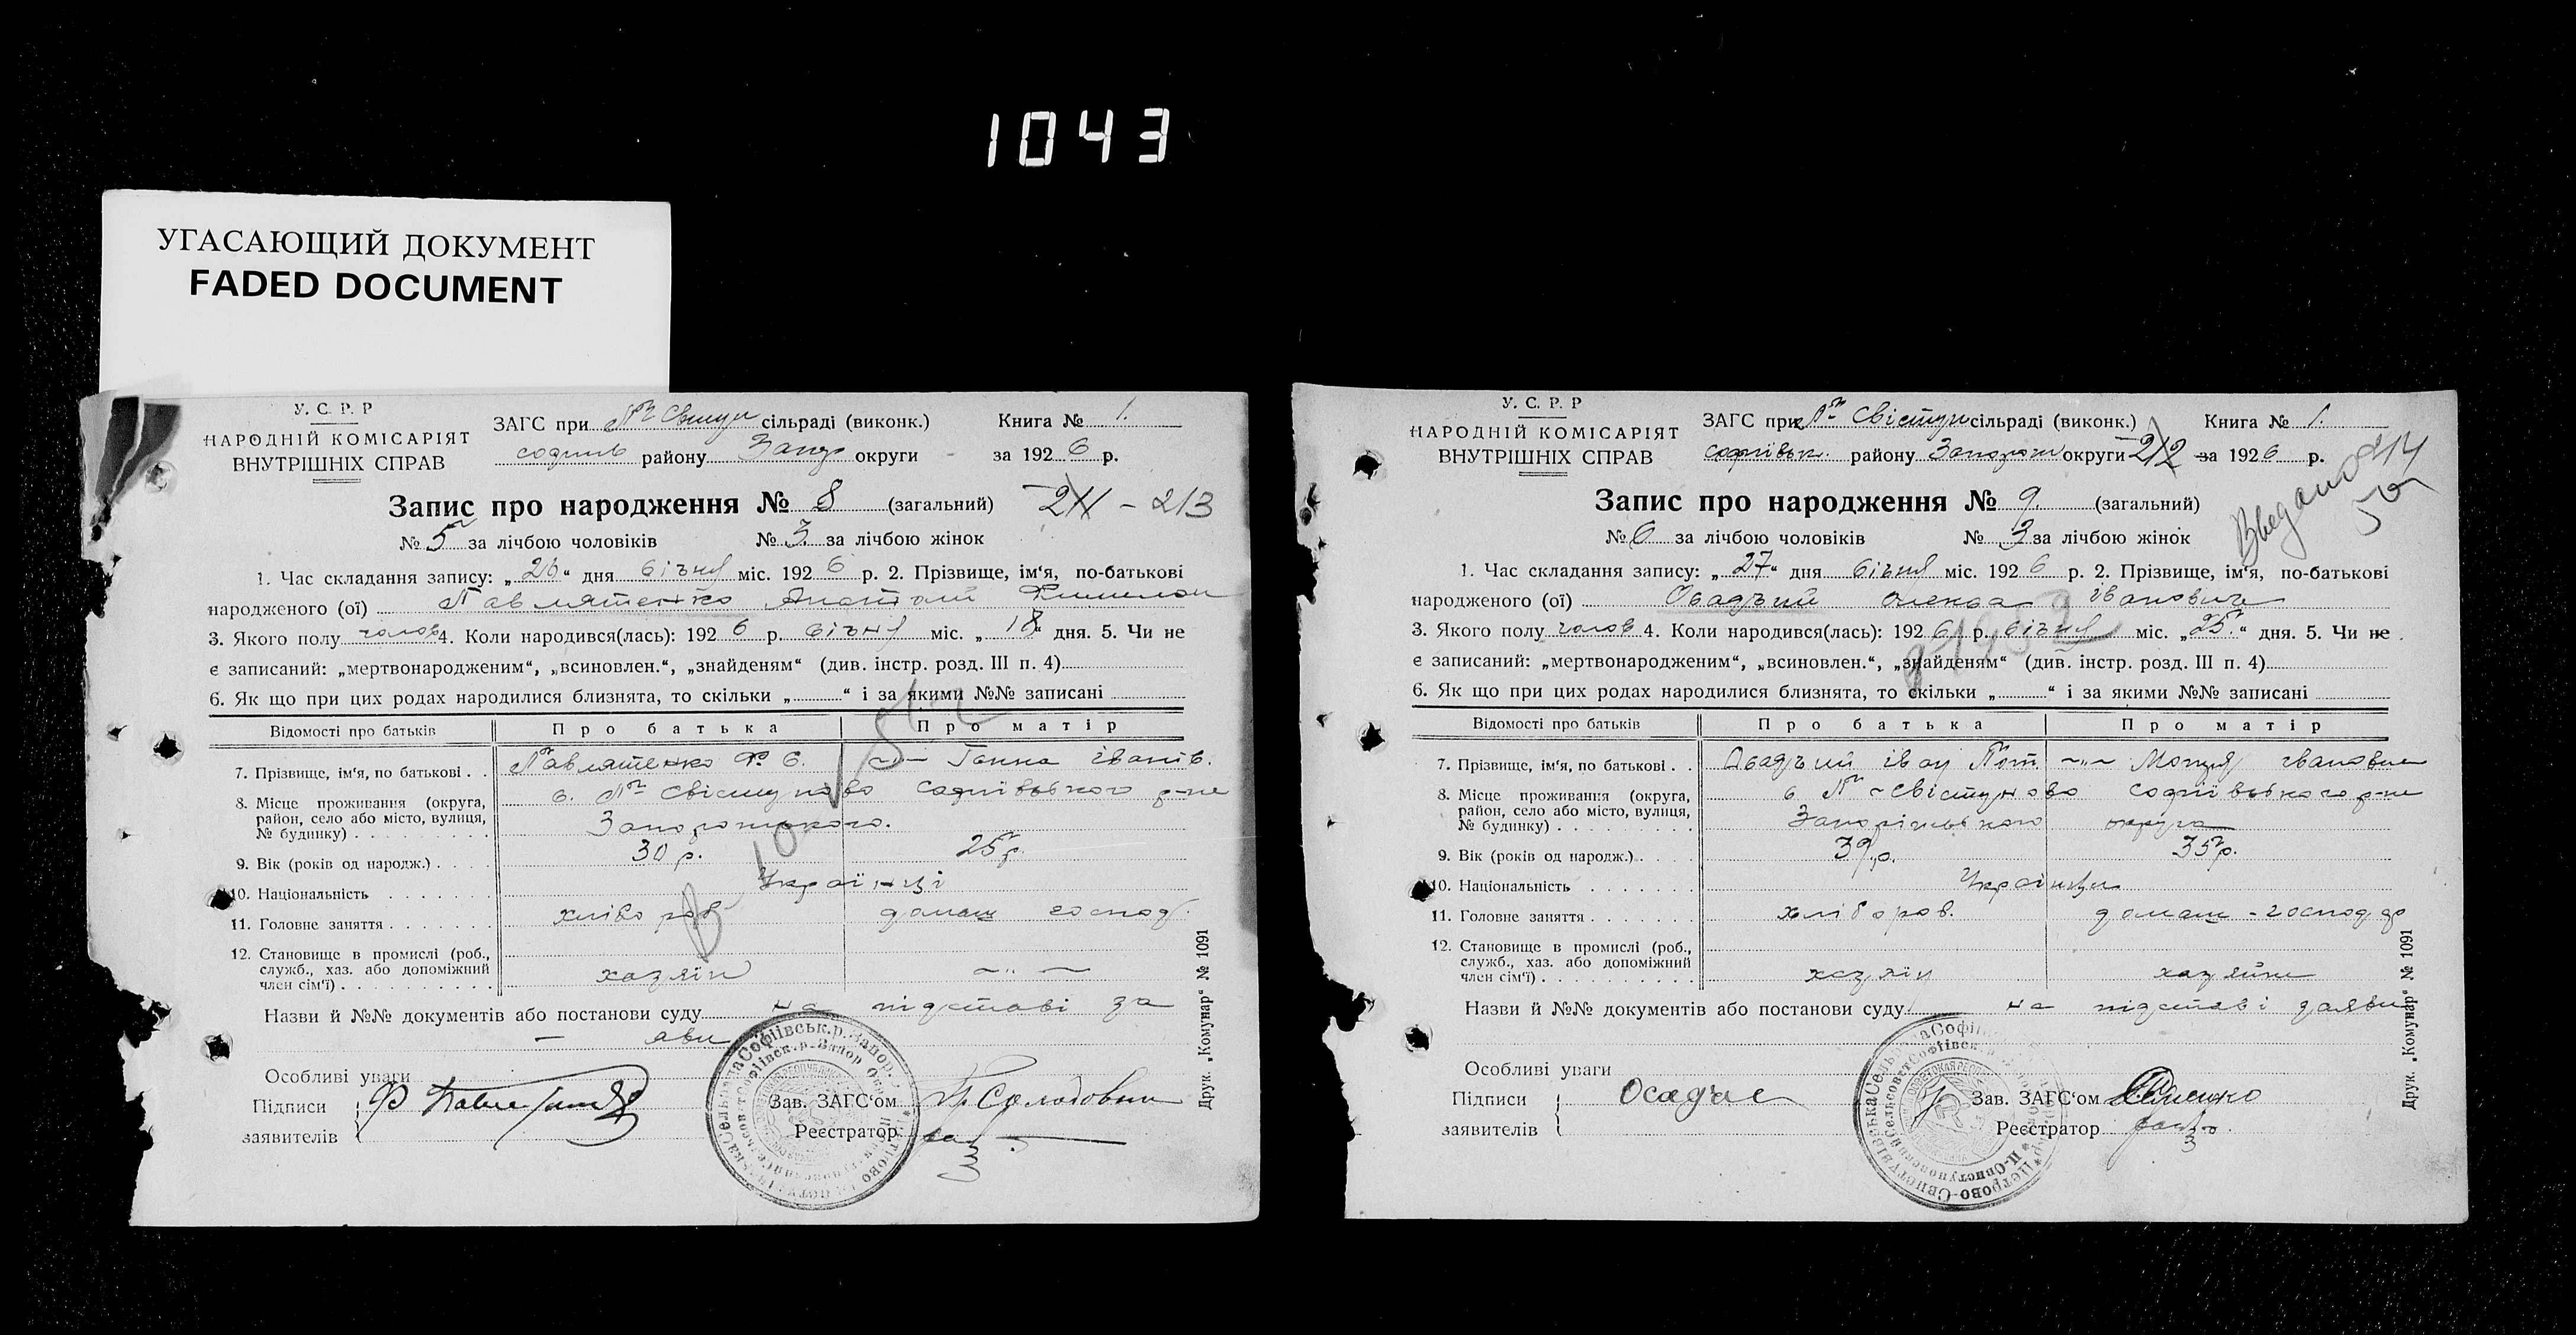 1043
УГАСАЮЩИЙ ДОКУМЕНТ
FADED DOCUMENT
У. С. Р. Р
НАРОДНІЙ КОМІСАРІЯТ
ВНУТРІШНІХ СПРАВ
ЗАГС при сільраді (виконк.) Книга № 1.
району округи за 1926 р.
Запис про народження № 8 (загальний) 211 - 213
№ 5 за лічбою чоловіків № 3 за лічбою жінок
1. Час складання запису: „26“ дня січня міс. 1926 р. 2. Прізвище, ім‘я, по-батькові
народженого (ої) Павлятенко Анатолій
3. Якого полу чолов 4. Коли народився(лась): 1926 р. січня міс. „18“ дня. 5. Чи не
є записаний: „мертвонародженим“, „всиновлен.“, „знайденям“ (див. інстр. розд. III п. 4)
6. Як що при цих родах народилися близнята, то скільки „ “ і за якими №№ записані
Відомості про батьків Про батька Про матір
7. Прізвище, ім‘я, по батькові . . Павлятенко Ф. С. —„— Ганна Іванів.
8. Місце проживання (округа, район, село або місто, вулиця, № будинку) с. Свістуново Софіївського р-не
Запорожського.
9. Вік (років од народж.) . . . . 30 р. 25 р.
10. Національність . . . . . . . Українці
11. Головне заняття . . . . . . . хлібороб домаш господ.
12. Становище в промислі (роб., служб., хаз. або допоміжний член сім‘ї) . . . . . . . . . . хазяїн —„—
Назви й №№ документів або постанови суду на підставі за
яви
Особливі уваги
Підписи
заявителів
Зав. ЗАГС‘ом
Реєстратор
Друк. „Комунар“ № 1091
У. С. Р. Р
НАРОДНІЙ КОМІСАРІЯТ
ВНУТРІШНІХ СПРАВ
ЗАГС при Свістун сільраді (виконк.) Книга № 1.
Софіївськ. району Запорож округи 212 за 1926 р.
214
Запис про народження № 9. (загальний)
№ 6 за лічбою чоловіків № 3 за лічбою жінок
1. Час складання запису: „27“ дня січня міс. 1926 р. 2. Прізвище, ім‘я, по-батькові
народженого (ої) Осадчий Олекса Іванович
3. Якого полу чолов 4. Коли народився(лась): 1926 р. січня міс. „25“ дня. 5. Чи не
є записаний: „мертвонародженим“, „всиновлен.“, „знайденям“ (див. інстр. розд. III п. 4)
6. Як що при цих родах народилися близнята, то скільки „ “ і за якими №№ записані
Відомості про батьків Про батька Про матір
7. Прізвище, ім‘я, по батькові . . Осадчий Іван Пот. —„— Мотря Івановна
8. Місце проживання (округа, район, село або місто, вулиця, № будинку) с. Свістуново Софіївського р-не
Запорізського округа
9. Вік (років од народж.) . . . . 39 р. 35 р.
10. Національність . . . . . . . Українци
11. Головне заняття . . . . . . . хлібороб. домаш - господар
12. Становище в промислі (роб., служб., хаз. або допоміжний член сім‘ї) . . . . . . . . . . хазяїн хазяйне
Назви й №№ документів або постанови суду на підставі заяви
Особливі уваги
Підписи Осадче
заявителів
Зав. ЗАГС‘ом
Реєстратор
Друк. „Комунар“ № 1091